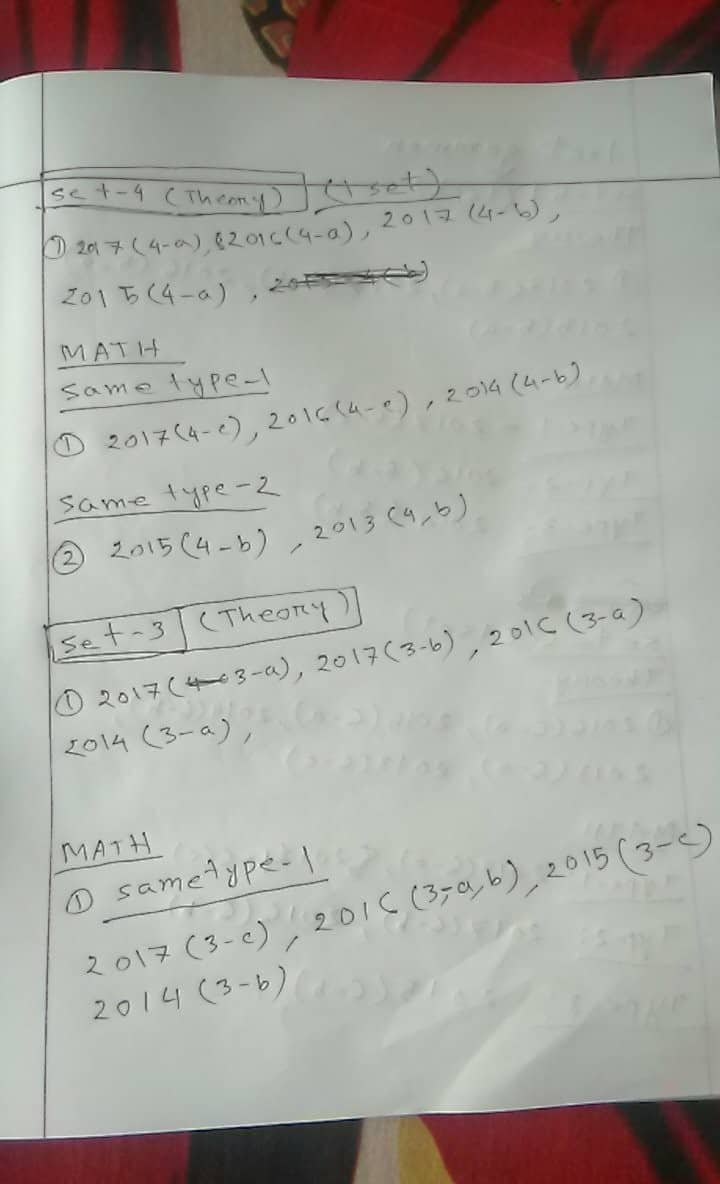 Set-4 (Theory) (1 set)
① 2017(4-a), 2016(4-a), 2017(4-b),
2015(4-a),
MATH
same type-1
① 2017(4-c), 2016(4-c), 2014(4-b)
same type-2
② 2015(4-b), 2013(4,b)
Set-3 (Theory)
① 2017(3-a), 2017(3-b), 2016(3-a)
2014(3-a),
MATH
① same type-1
2017(3-c), 2016(3-a,b), 2015(3-c)
2014(3-b)